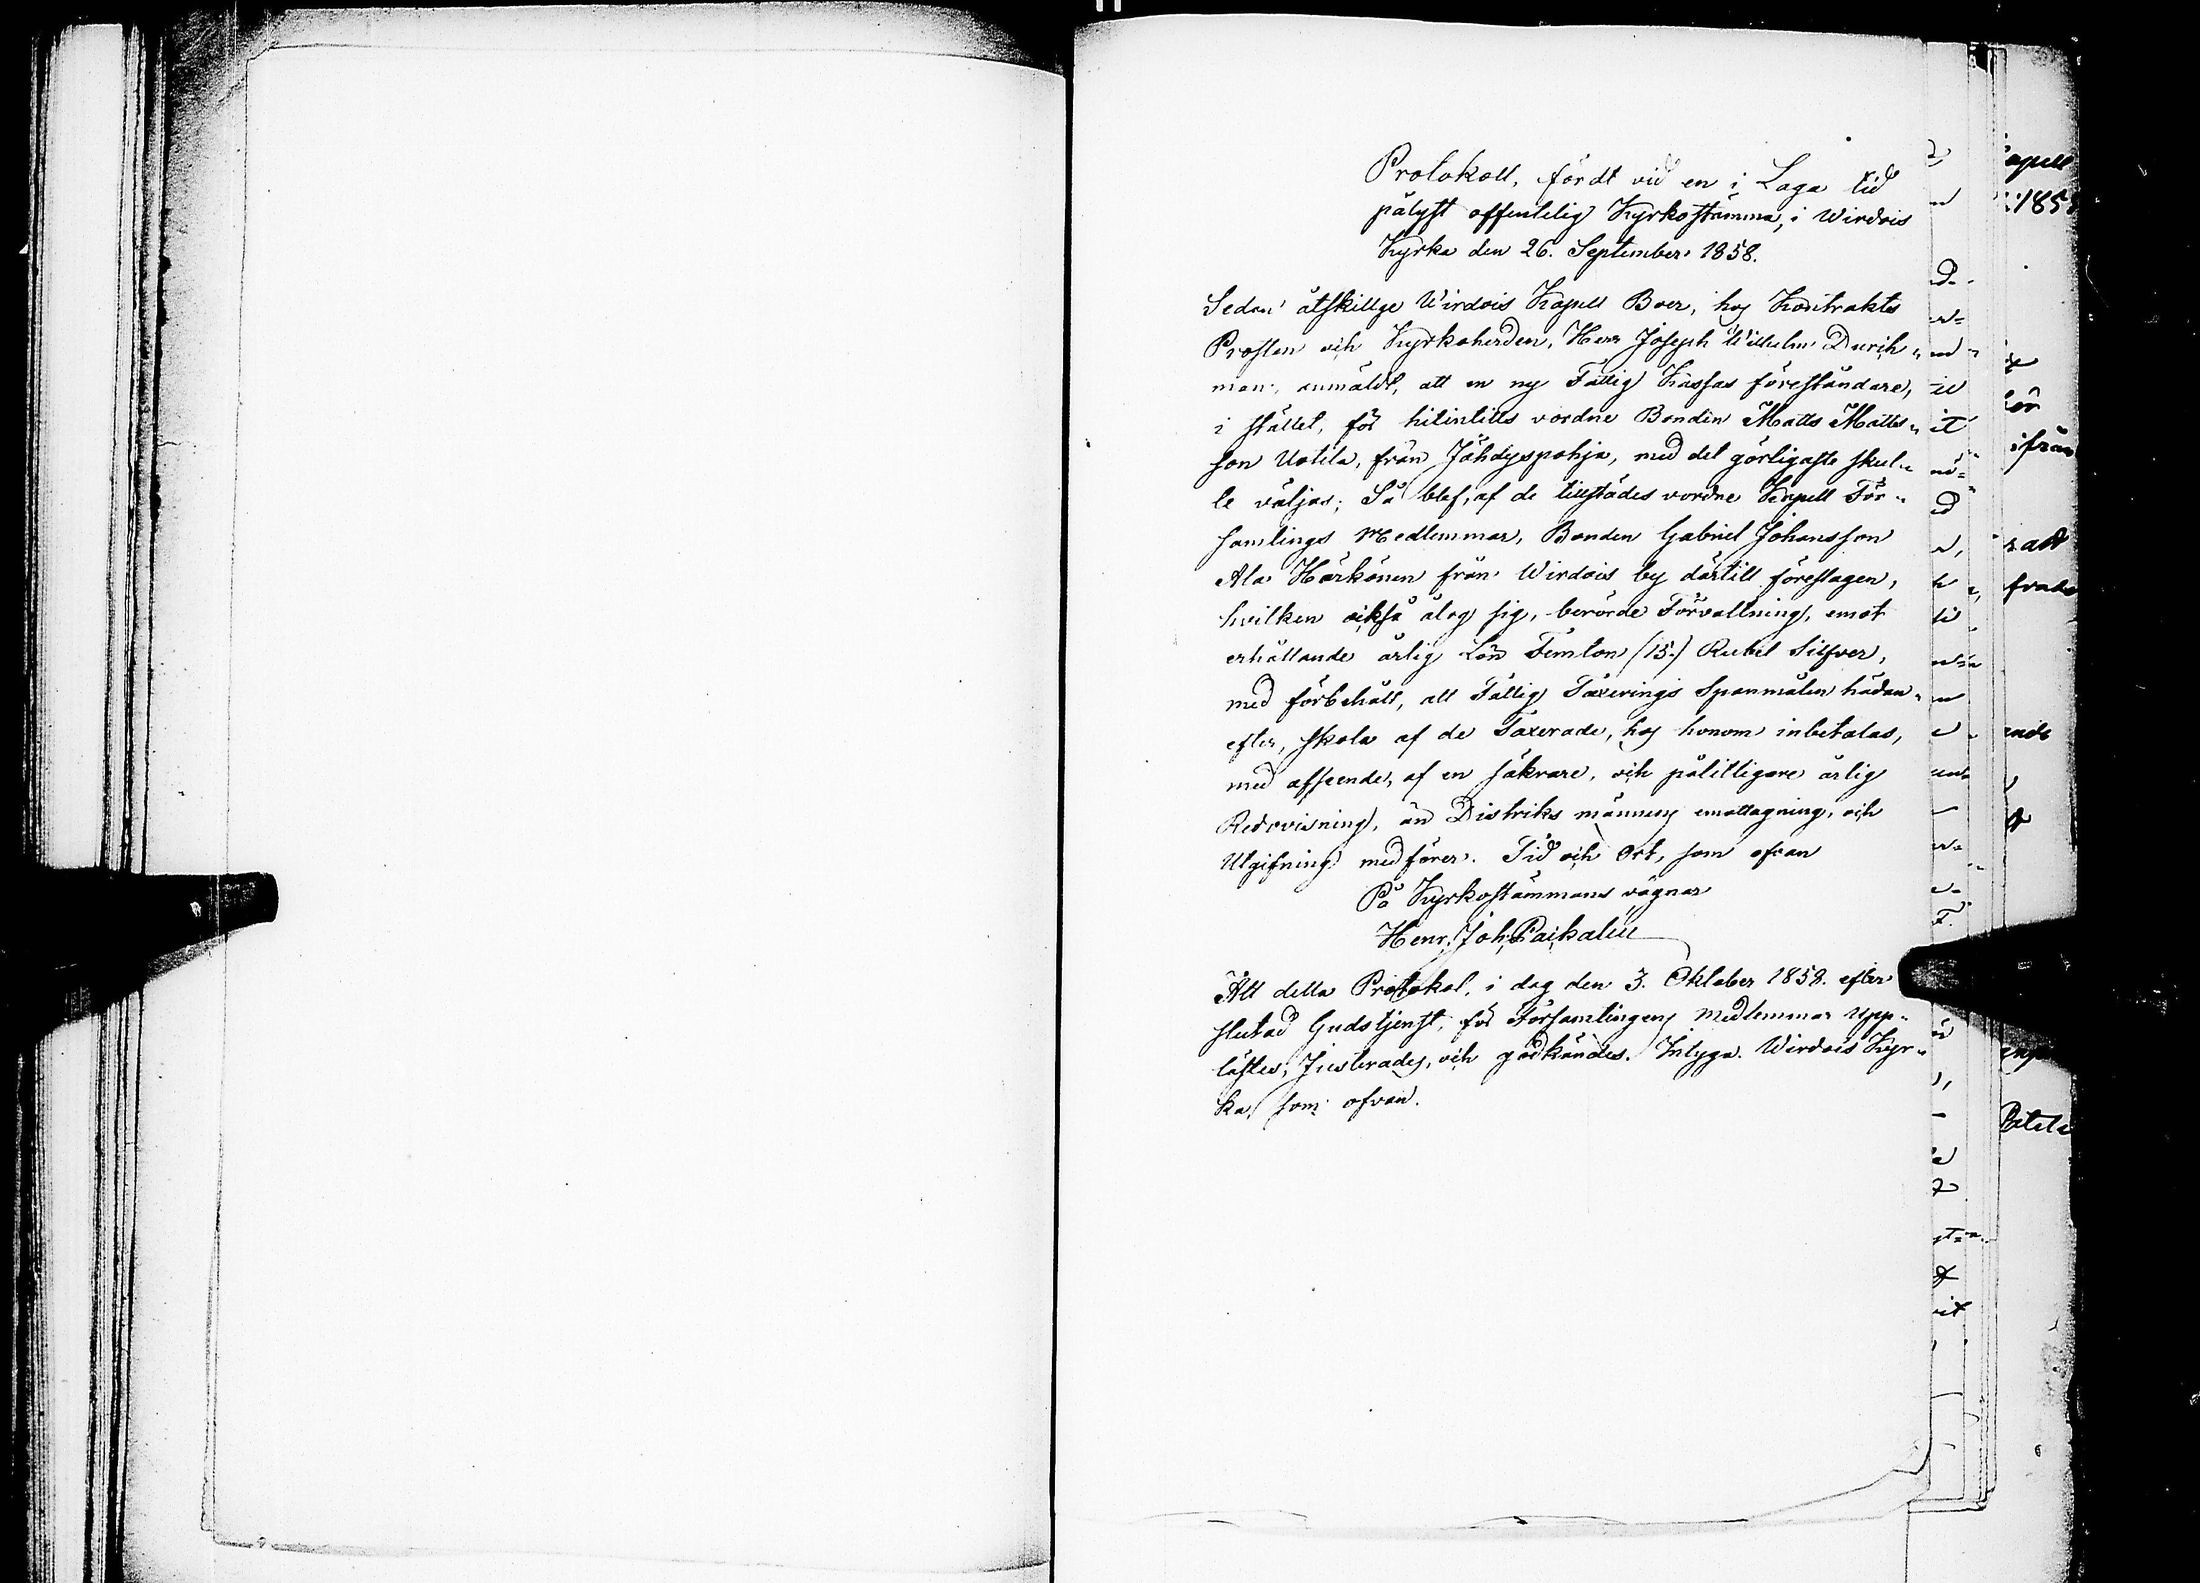 Protokoll, fördt vid en i Laga tid
pålyst offentelig Kyrkostämma, i Wirdois
Kyrka den 26. September 1858.
Sedan åtskillge Wirdois Kapell Boer, hos Kontrakts
Prosten och Kyrkoherden, Herr Joseph Wilhelm Durch„
man, anmäldt, att en ny Fattig Kassas föreståndare,
i stället, för hitintills vordne Bonden Matts Matts„
son Uotila, från Jähdyspohja, med det görligaste skul„
le väljas; Så blef, af de tillstädes vordne Kapell För„
samlings Medlemmar, Bonden Gabriel Johansson
Ala Härkönen från Wirdois by därtill föreslagen,
hvilken också åtog sig, berörde Förvaltning, emot
erhållande årlig Lön Femton (15.) Rubel Silfver,
med förbehåll, att Fattig Taxerings Spanmålen hädan„
efter, skola af de Taxerade, hos honom inbetalas,
med afseende, af en säkrare, och pålitligare årlig
Redovisning, än Distriks männens emottagning, och
Utgifning medförer. Tid och Ort, som ofvan
På Kyrkostämmans vägnar
Henr. Joh. Paikalin
Att detta Protokol, i dag den 3. Oktober 1858. efter
slutad Gudstjenst, för Församlingens medlemmar upp„
lästes, Justerades, och godkändes. Intyga. Wirdois Kyr„
ka, som ofvan.